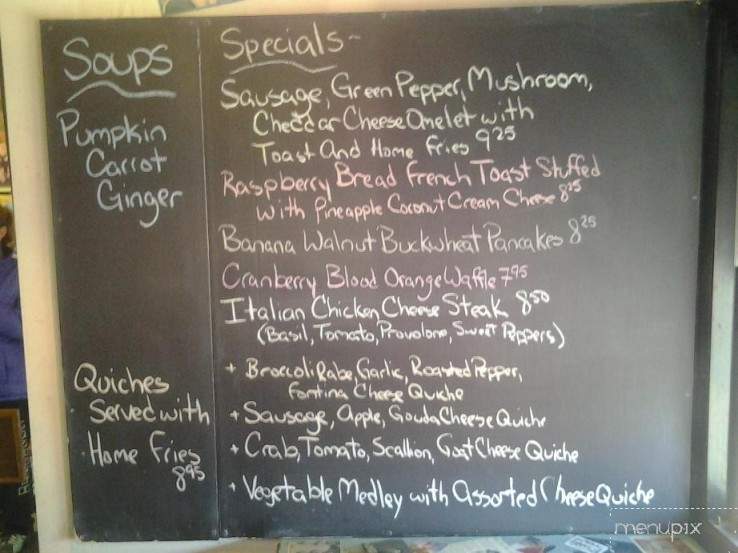 Soups
Pumpkin
Carrot
Ginger
Quiches
Served with
Home Fries
8.95
Specials~
Sausage, Green Pepper, Mushroom,
Cheddar Cheese Omelet with
Toast And Home Fries 9.25
Raspberry Bread French Toast Stuffed
With Pineapple Coconut Cream Cheese 8.25
Banana Walnut Buckwheat Pancakes 8.25
Cranberry Blood Orange Waffle 7.95
Italian Chicken Cheese Steak 8.50
(Basil, Tomato, Provolone, Sweet Peppers)
+ Broccoli Rabe, Garlic, Roasted Pepper,
Fontina Cheese Quiche
+ Sausage, Apple, Gouda Cheese Quiche
+ Crab, Tomato, Scallion, Goat Cheese Quiche
+ Vegetable Medley with Assorted Cheese Quiche
menupix